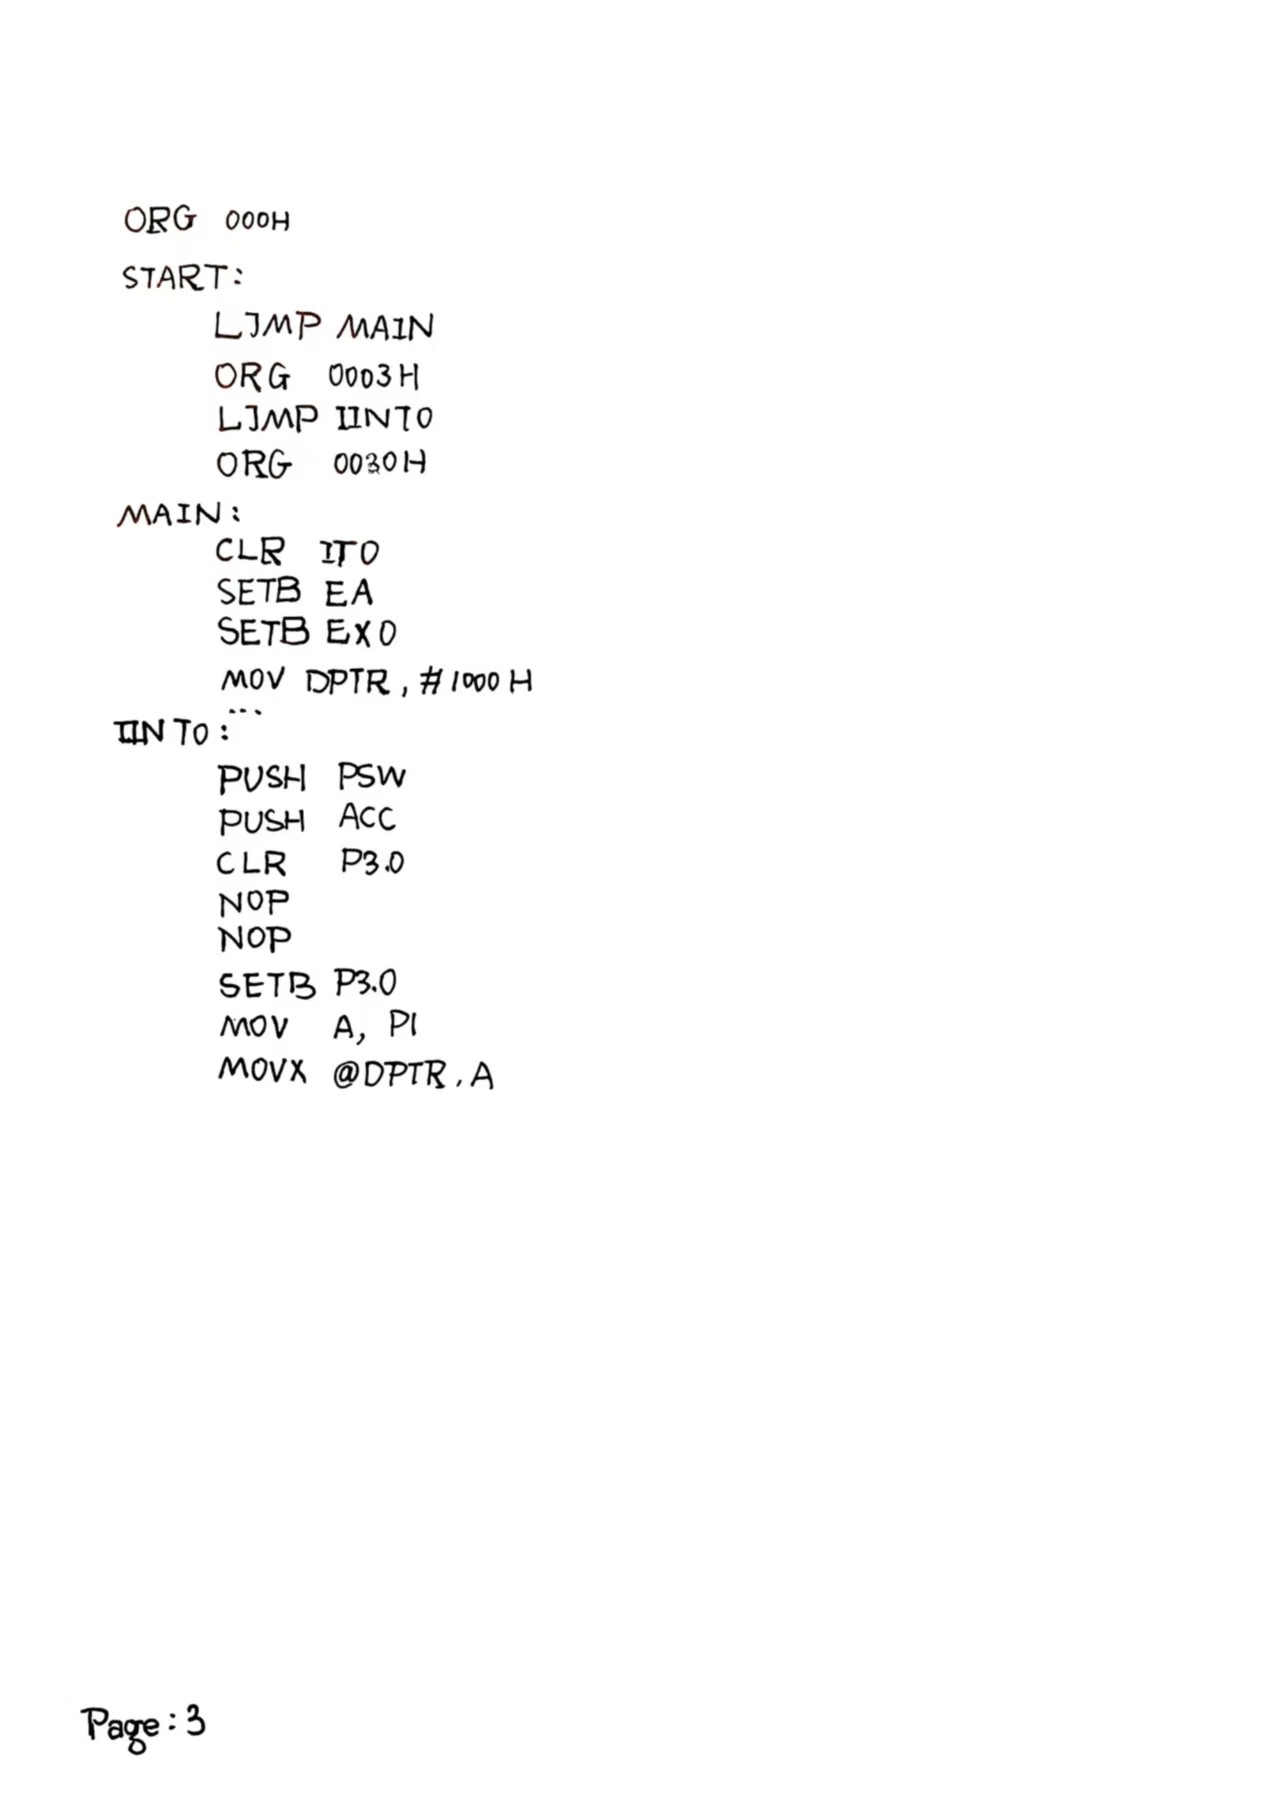 ORG 000H
START:
LJMP MAIN
ORG 0003H
LJMP IINT0
ORG 0030H
MAIN:
CLR IT0
SETB EA
SETB EX0
MOV DPTR, #1000H
...
IINT0:
PUSH PSW
PUSH ACC
CLR P3.0
NOP
NOP
SETB P3.0
MOV A, P1
MOVX @DPTR, A
Page: 3